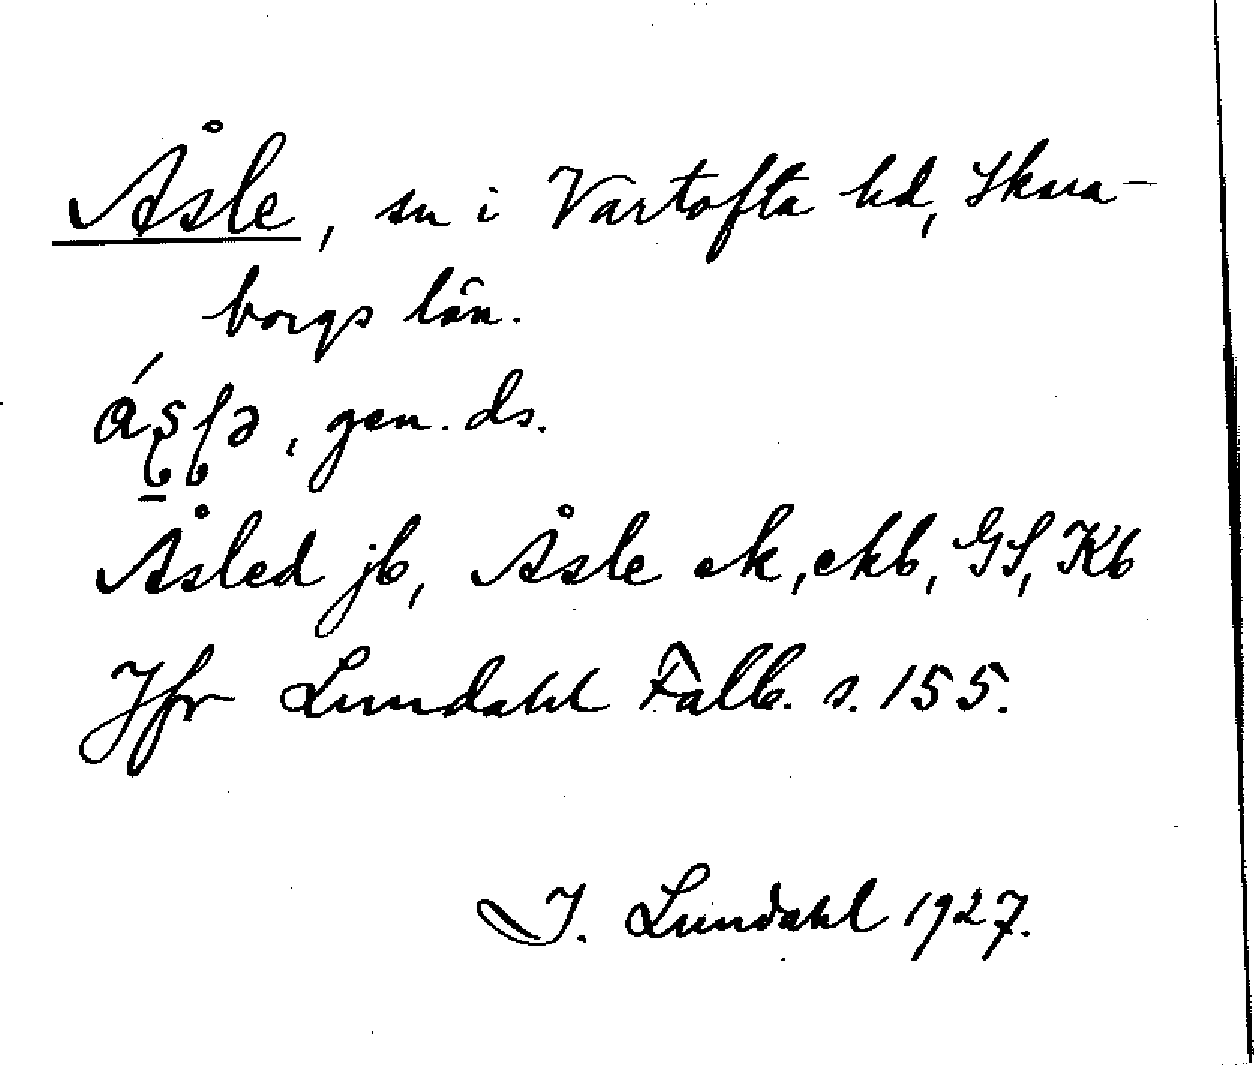 Åsle, sn i Vartofta hd, Skara-
borgs län.
, gen. ds.
Åsled jb, Åsle ek, ekb, GS, Kb
Jfr Lundahl Falb. s. 155.
I. Lundahl 1927.